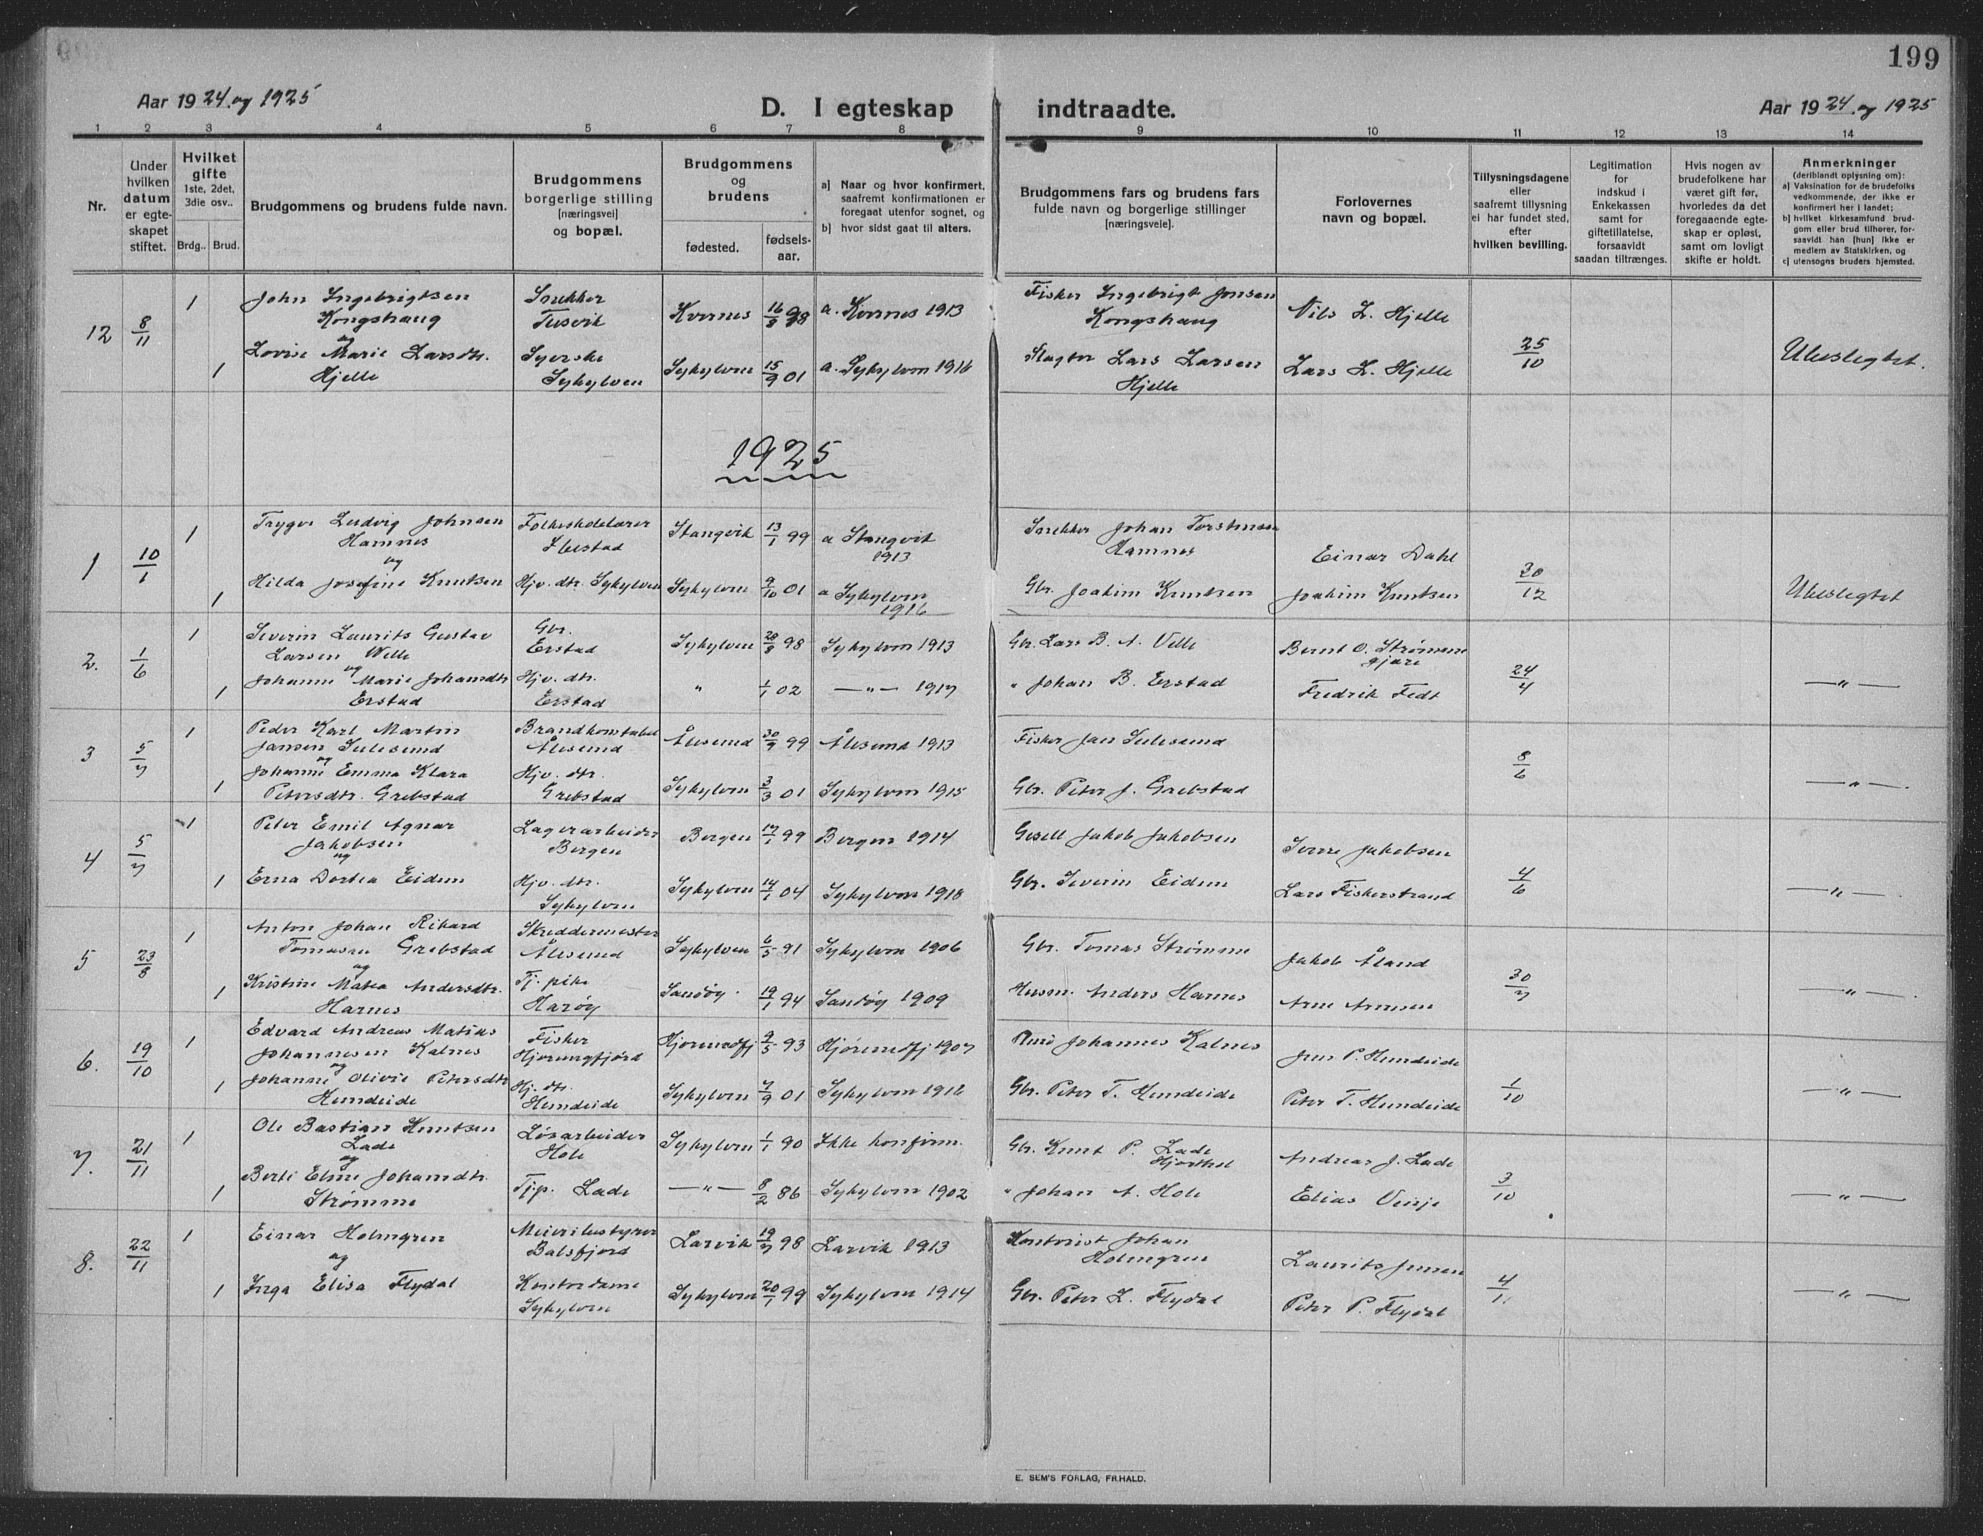 199
Aar 1924 og 1925
D. I egteskap indtraadte.
Aar 1924 og 1925
1 2 3 4 5 6 7 8 9 10 11 12 13 14
Nr.
Under hvilken datum er egteskapet stiftet.
Hvilket gifte 1ste, 2det, 3die osv..
Brdg.. Brud.
Brudgommens og brudens fulde navn.
Brudgommens borgerlige stilling [næringsvei] og bopæl.
Brudgommens og brudens
fødested. fødselsaar.
a) Naar og hvor konfirmert, saafremt konfirmationen er foregaat utenfor sognet, og
b) hvor sidst gaat til alters.
Brudgommens fars og brudens fars fulde navn og borgerlige stillinger [næringsveie].
Forlovernes navn og bopæl.
Tillysningsdagene eller saafremt tillysning ei har fundet sted, efter hvilken bevilling.
Legitimation for indskud i Enkekassen samt for giftetillatelse, forsaavidt saadan tiltrænges.
Hvis nogen av brudefolkene har været gift før, hvorledes da det foregaaende egteskap er opløst, samt om lovligt skifte er holdt.
Anmerkninger (deriblandt oplysning om):
a) Vaksination for de brudefolks vedkommende, der ikke er konfirmert her i landet;
b) hvilket kirkesamfund brudgom eller brud tilhører, forsaavidt han [hun] ikke er medlem av Statskirken, og
c) utensogns bruders hjemsted.
12 8/11 1 John Ingebrigtsen Kongshaug Snekker Tusvik Kvernes 16/8 98 a. Kvernes 1913 Fisker Ingebrigt Jonsen Kongshaug Nils L. Hjelle
og
1 Lovise Marie Larsdtr. Hjelle Syerske Sykylven Sykylven 15/9 01 a. Sykylven 1916 Lars Larsen Hjelle Lars L. Hjelle 25/10 Ubeslegtet.
1925
1 10/1 1 Trygve Ludvig Johnsen Hamnes Folkeskolelærer Ibestad Stangvik 13/1 99 a Stangvik 1913 Snekker Johan Torstensen Hamnes Einar Dahl
og
1 Hilda Josefine Knutsen Hjv. dtr. Sykylven Sykylven 9/10 01 a Sykylven 1916 Gbr. Joakim Knutsen Joakim Knutsen 30/12 Ubeslegtet
2. 1/6 1 Severin Laurits Gustav Larsen Welle Gbr. Erstad Sykylven 28/8 98 Sykylven 1913 Gbr. Lars B. A. Velle Bernt O. Strømmegjære
og
1 Johanne Marie Johansdtr Erstad Hjv. dtr. Erstad " 1/1 02 —"— 1917 " Johan B. Erstad Fredrik Fedt 24/4 —"—
3 5/7 1 Peder Karl Martin Jansen Sulesund Brandkonstabel Ålesund Ålesund 30/9 99 Ålesund 1913 Fisker Jan Sulesund
og
1 Johanne Emma Klara Petersdtr. Grebstad Hjv. dtr. Grebstad Sykylven 3/3 01 Sykylven 1915 Gbr. Peter J. Grebstad 8/6 —"—
4 5/7 1 Peter Emil Agnar Jakobsen Lagerarbeider Bergen Bergen 17/1 99 Bergen 1914 Gesell Jakob Jakobsen Sverre Jakobsen
og
1 Erna Dortea Eidem Hjv. dtr. Sykylven Sykylven 14/1 04 Sykylven 1918 Gbr. Severin Eidem Lars Fiskerstrand 4/6 —"—
5 23/8 1 Anton Johan Rikard Tomasen Grebstad Skreddermester Ålesund Sykylven 6/5 91 Sykylven 1906 Gbr. Tomas Strømme Jakob Åland
og
1 Kristine Matea Andersdtr. Harnes Tj. pike Harøy Sandøy 19/1 94 Sandøy 1909 Husm. Anders Harnes Arne Arnesen 30/7 —"—
6. 19/10 1 Edvard Andreas Matias Johannesen Kalnes Fisker Hjørungfjord Hjørundfj 9/5 93 Hjørundfj 1907 Johannes Kalnes Jens P. Hundeide
og
1 Johanne Olivie Petersdtr Hundeide Hj. dtr. Hundeide Sykylven 7/9 01 Sykylven 1916 Gbr. Peter T. Hundeide Peter T. Hundeide 1/10 —"—
7. 21/11 1 Ole Bastian Knutsen Lade Løsarbeider Hole Sykylven 1/1 90 Ikke konfirm. Gbr. Knut P. Lade Hjorthol Andreas J. Lade
og
1 Berte Eline Johansdtr. Strømme Tjp. Lade —"— 8/2 86 Sykylven 1902 " Johan A. Hole Elias Vinje 3/10 —"—
8. 22/11 1 Einar Holmgren Meieribestyrer Balsfjord Larvik 19/7 98 Larvik 1913 Kontorist Johan Holmgren Laurits Jensen
og
1 Inga Elisa Flydal Kontordame Sykylven Sykylven 20/1 99 Sykylven 1914 Gbr. Peter L. Flydal Peter P. Flydal 4/11 —"—
E. SEM'S FORLAG, FR.HALD.